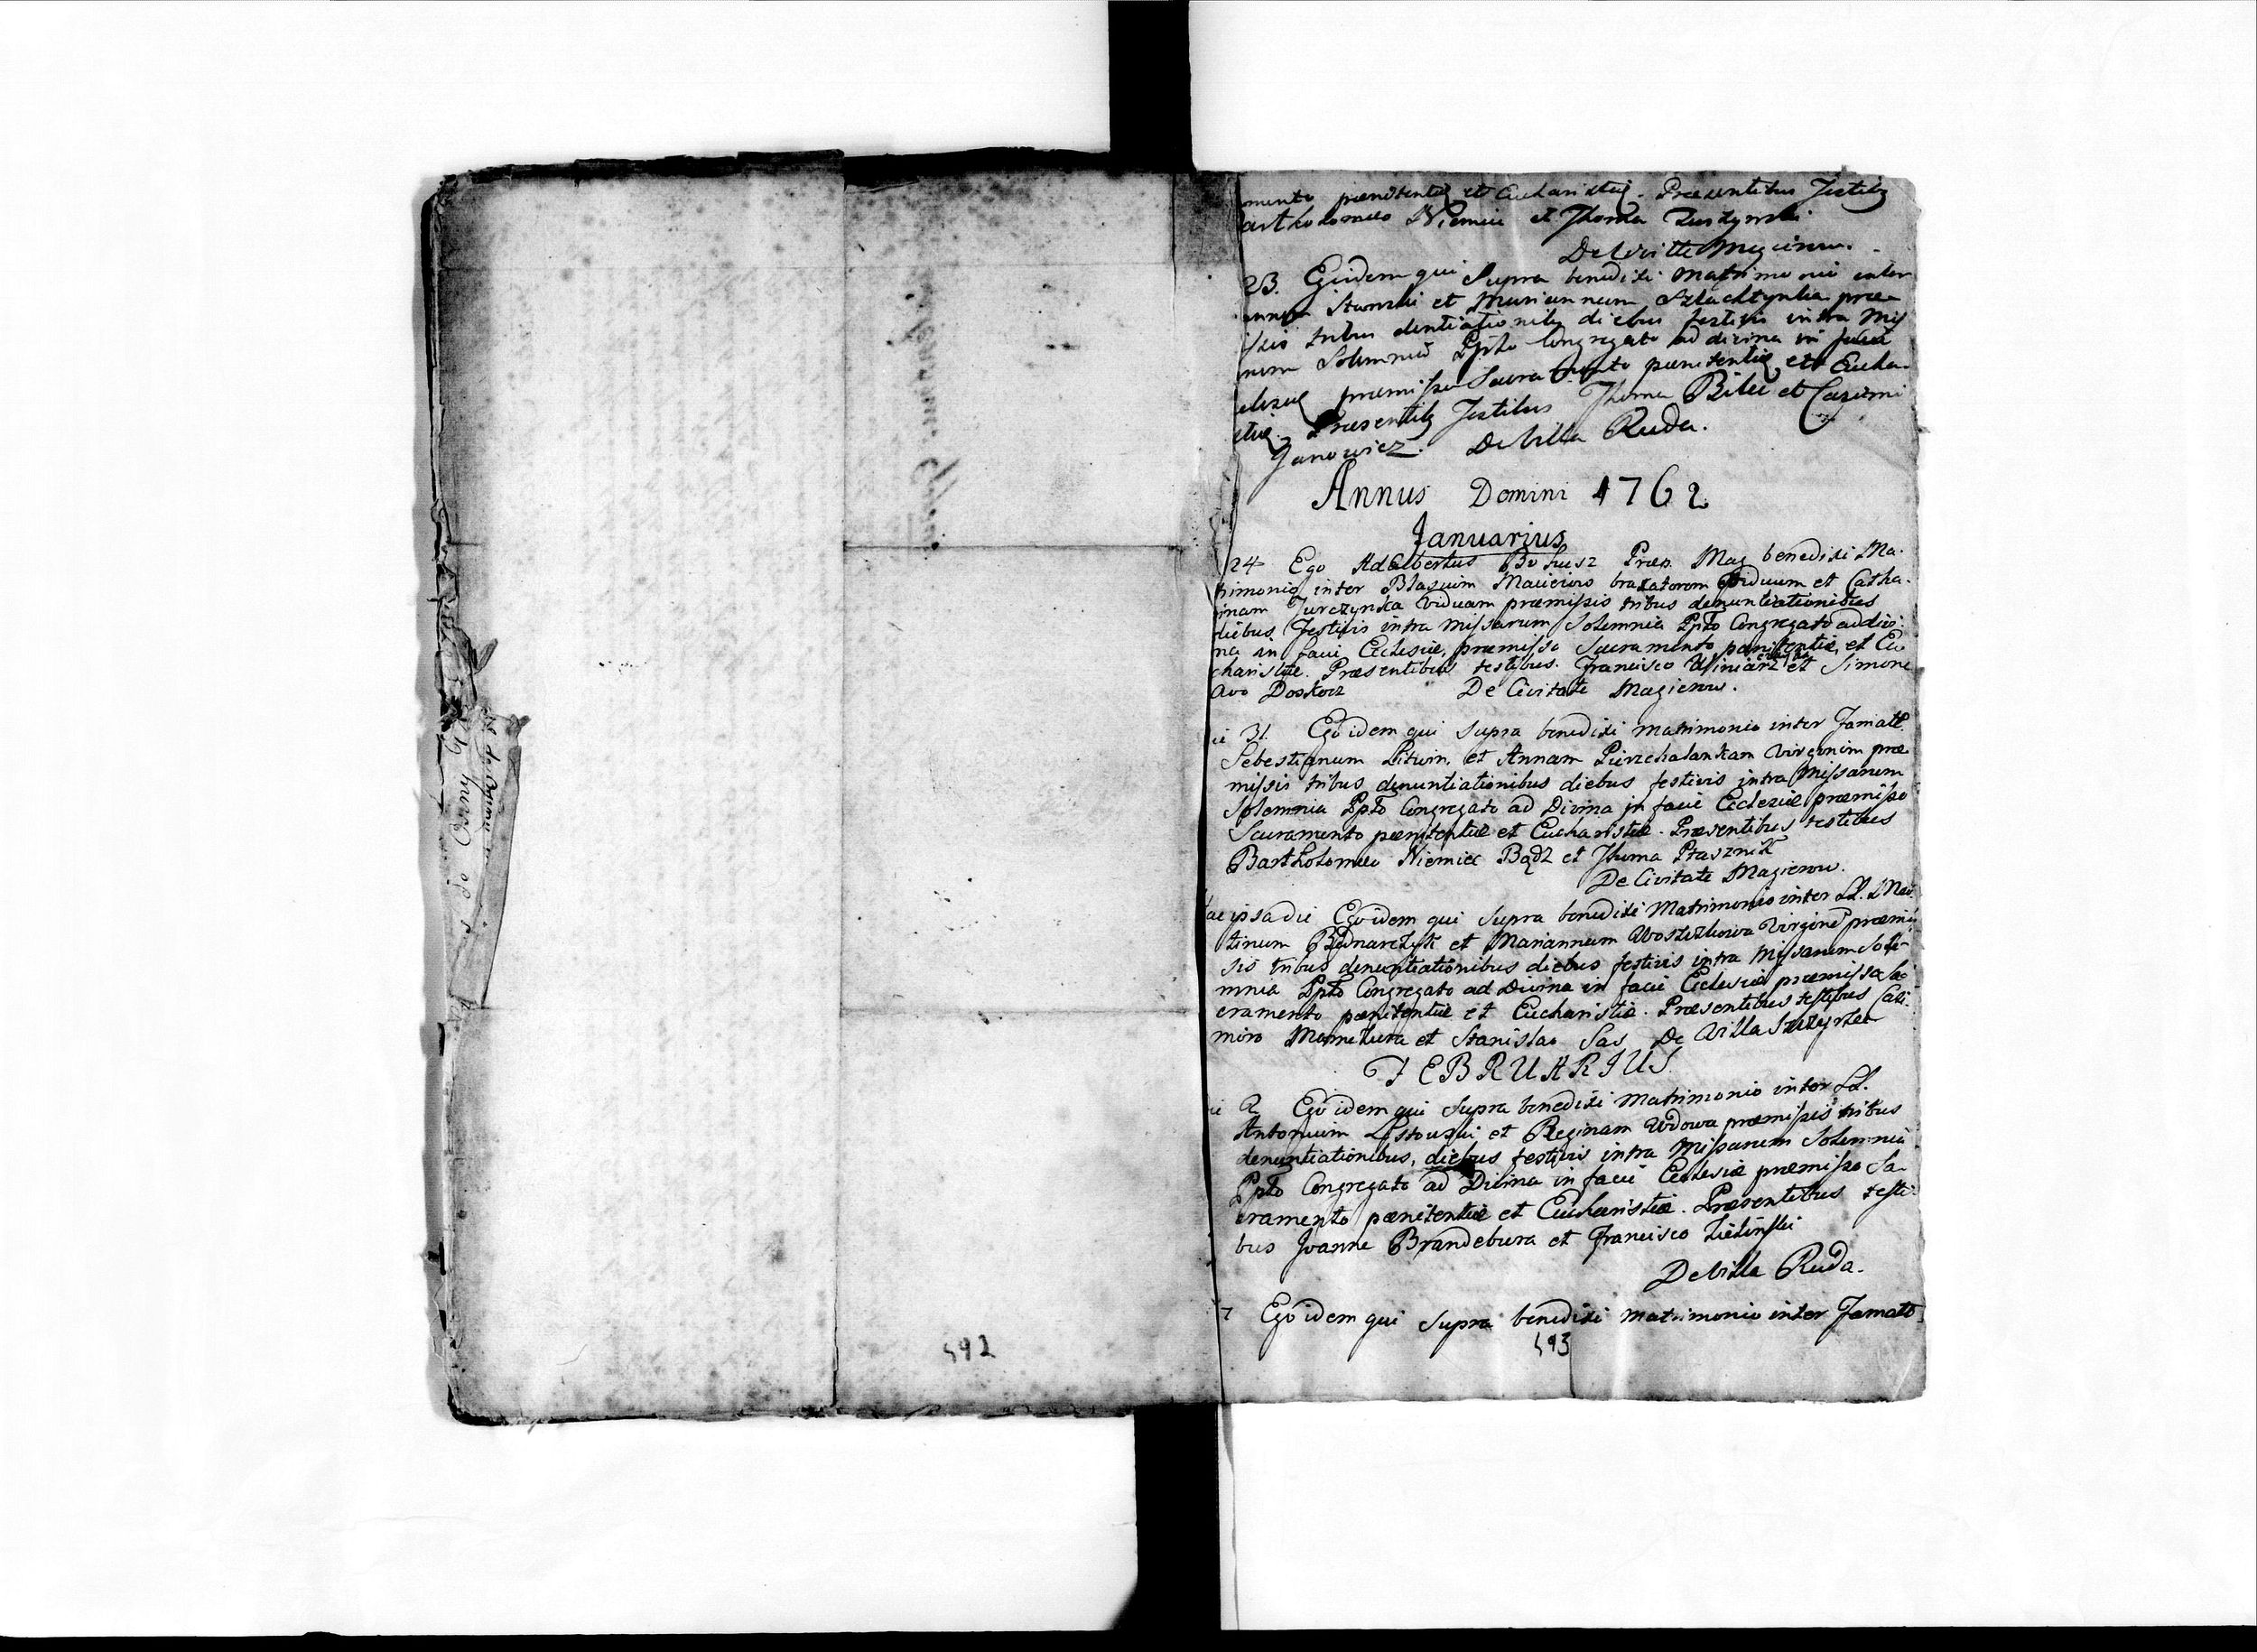 mento pænitentiæ et Eucharistiæ. Præsentibus Testibꝫ
artholomæo Niemiec et Thoma
23. Ego idem qui Supra benedixi Matrimonio inter
et Mariannam Szlachtynka præ-
issis tribus dentiationibꝫ diebus festivis intra Miss
Solemnia Ppło Congregato ad divina in facie
clesiæ præmisso Sacramento pænitentiæ et Eucha-
stiæ. Præsentibꝫ Testibus Thoma Bilec et Casimi
Janowicz. De Villa Ruda.
Annus Domini 1762
Januarius
24 Ego Adalbertus Bohusz Præp. Mag benedixi Ma-
trimonio inter Blasium braxatorem Viduum et Catha-
rinam Jurczynska Viduam præmissis tribus denuntiationibus
diebus festivis intra missarum Solemnia Ppło Congregato ad divi-
na in facie Ecclesiæ, præmisso Sacramento pænitentiæ, et Eu
charistiæ. Præsentibus testibus. Francisco et Simone
De Civitate Magierow.
ie 31. Ego idem qui Supra benedixi matrimonio inter Famatł
Sebestianum Litwin. et Annam Virginem præ
missis tribus denuntiationibus diebus festivis intra Missarum
Solemnia Ppło Congregato ad Divina in facie Ecclesiæ præmisso
Sacramento pænitentiæ et Eucharistiæ. Præsentibus testibus
Bartholomæo Niemiec Bądz et Thoma Ptasznik
De Civitate Magierow.
ac ipsa die Ego idem qui Supra benedixi Matrimonio inter LL. Mar
tinum Bednarczyk et Mariannam Virginē præmis
sis tribus denuntiationibus diebus festivis intra Missarum Sole-
mnia Ppło Congregato ad Divina in facie Ecclesiæ præmisso Sa-
cramento pænitentiæ et Eucharistiæ. Præsentibus testibus Casi-
miro et Stanislao Sas De Villa
FEBRUARIUS.
ie 2 Ego idem qui Supra benedixi Matrimonio inter LL.
Antonium et Reginam Wdowa præmissis tribus
denuntiationibus, diebus festivis intra Missarum Solemnia
Ppło Congregato ad Divina in facie Ecclesiæ præmisso Sa-
cramento pænitentiæ et Eucharistiæ. Præsentibus testi-
bus Joanne Brandebura et Francisco Zielinski
De Villa Ruda.
7 Ego idem qui Supra benedixi matrimonio inter Famatł
592
593